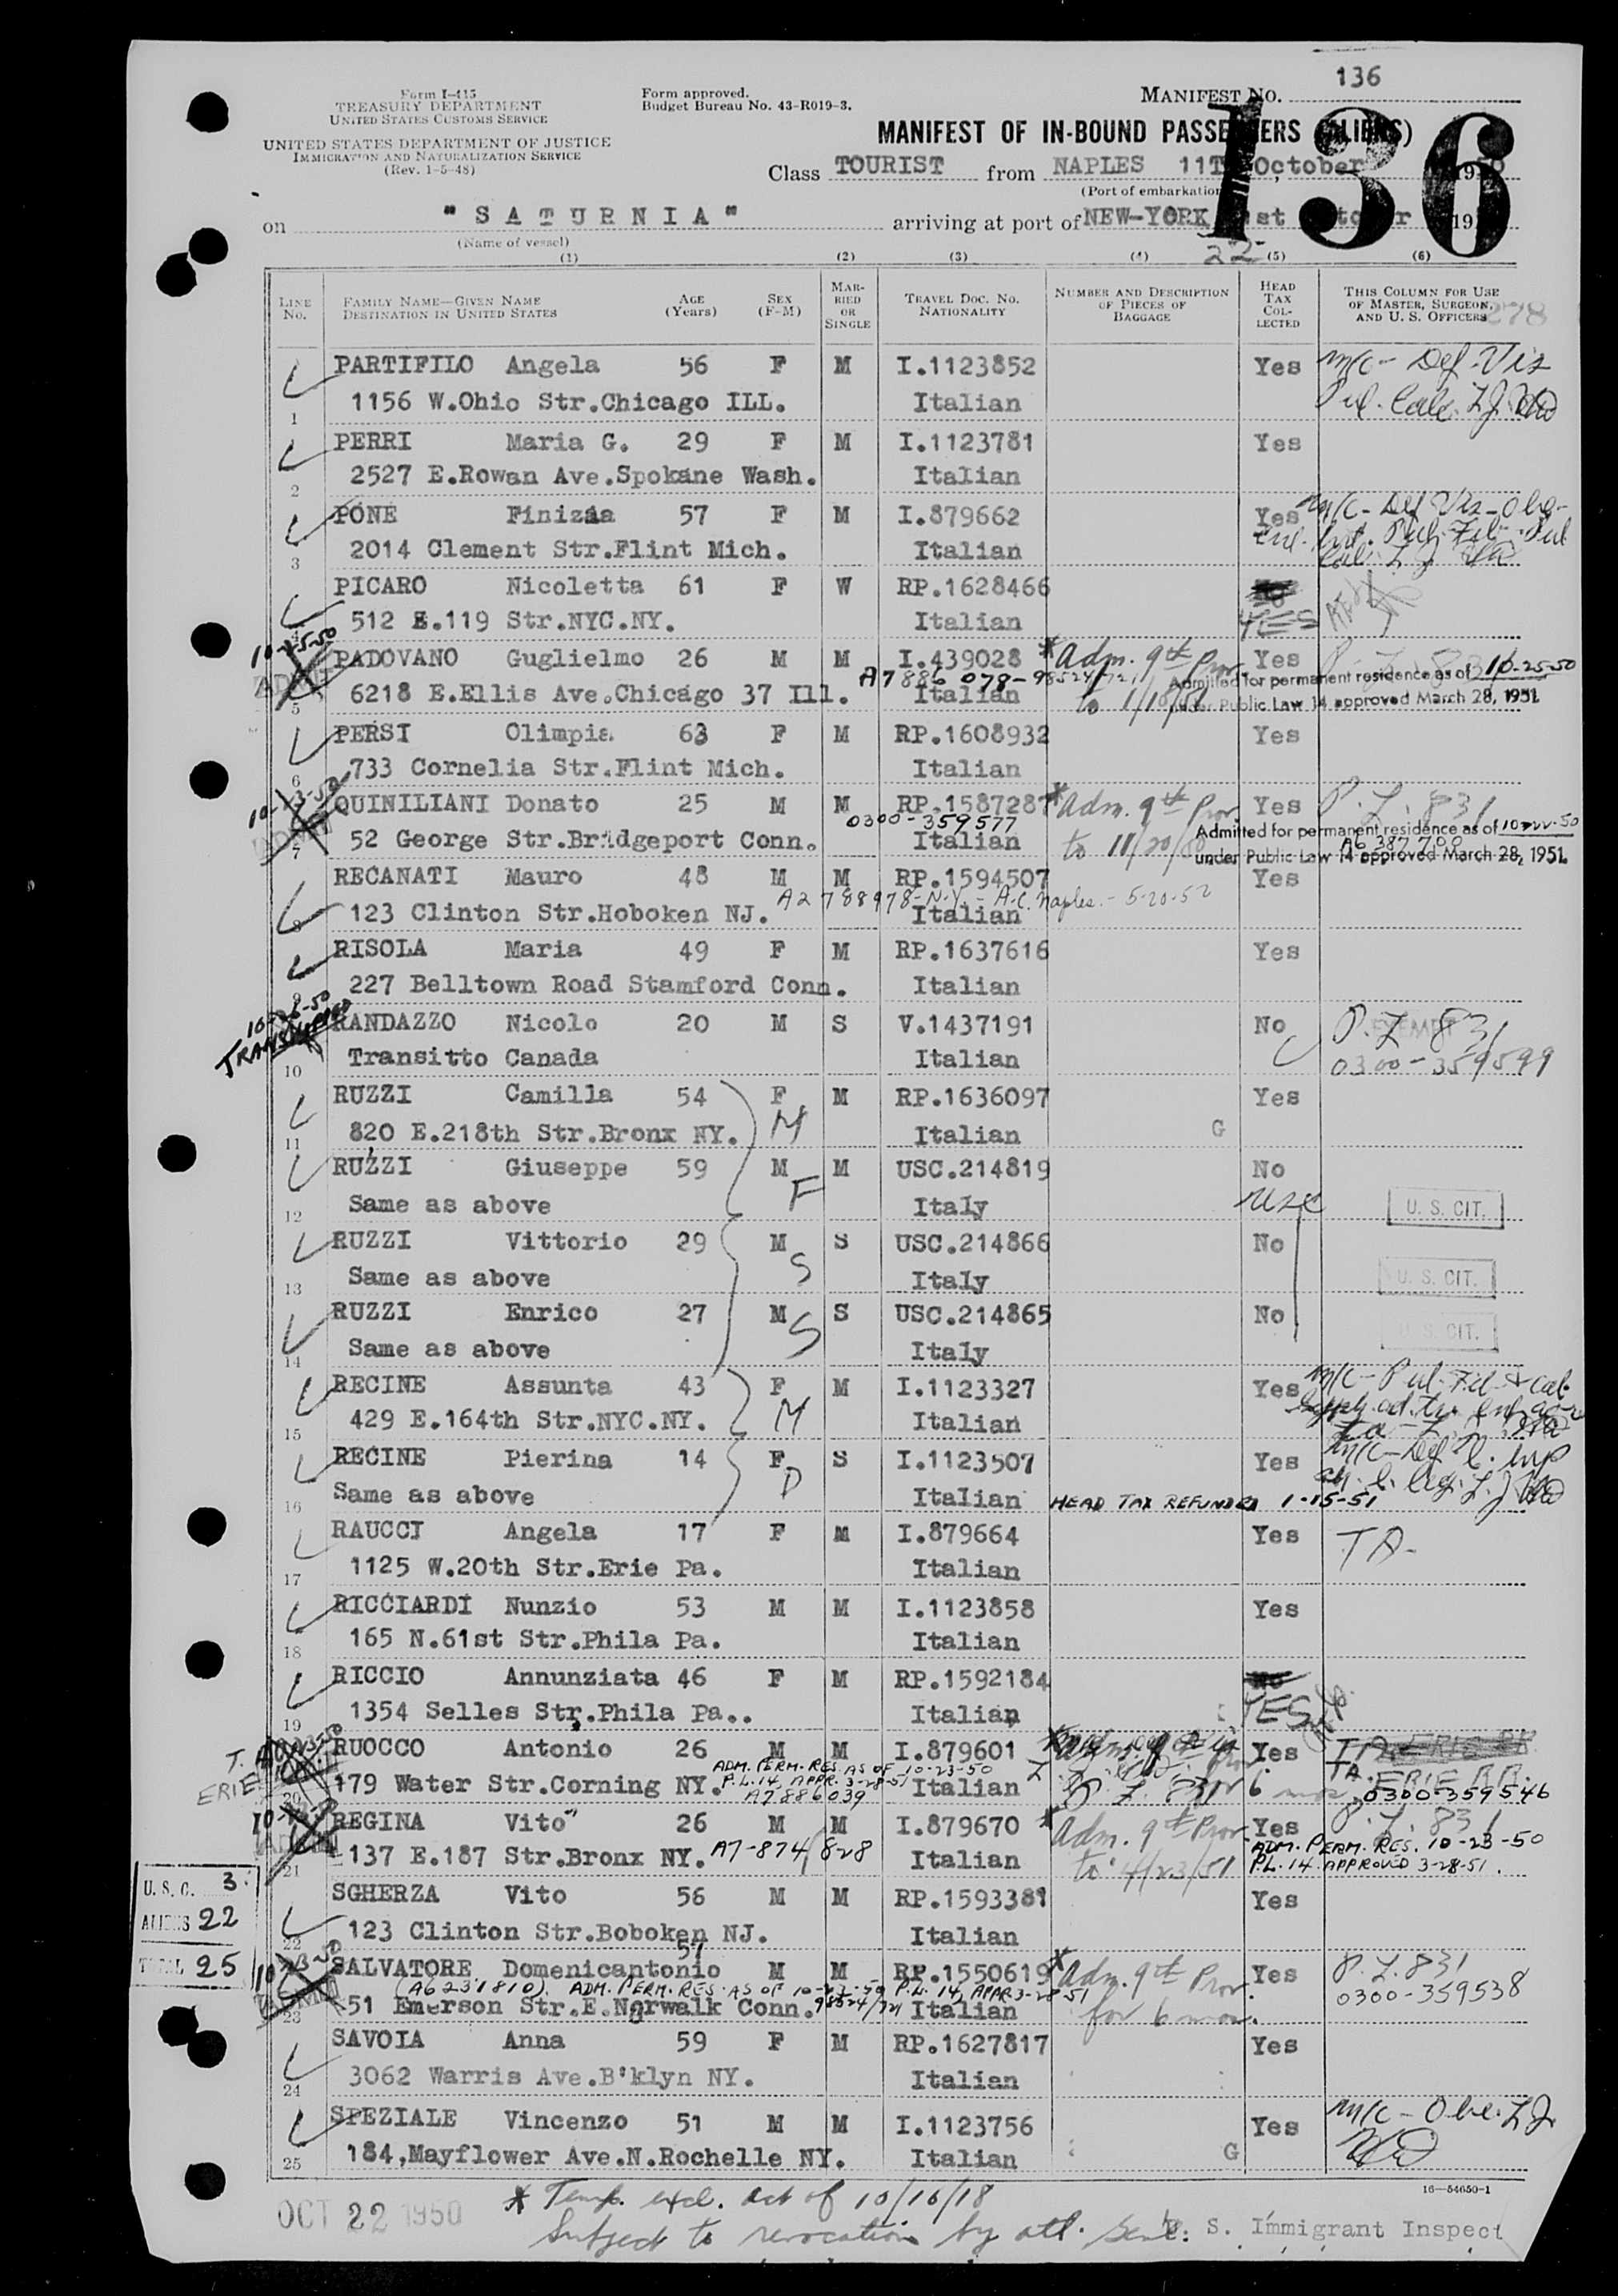 Form I-415
TREASURY DEPARTMENT
UNITED STATES CUSTOMS SERVICE
UNITED STATES DEPARTMENT OF JUSTICE
IMMIGRATION AND NATURALIZATION SERVICE
(Rev. 1-5-48)
Form approved.
Budget Bureau No. 43-R019-3.
MANIFEST NO. 136
136
MANIFEST OF IN-BOUND PASSENGERS (ALIENS)
Class TOURIST from NAPLES 11TH October 1950
(Port of embarkation)
on "SATURNIA" arriving at port of NEW-YORK 1st October 19
(Name of vessel) 22
(1) (2) (3) (4) (5) (6)
LINE No. FAMILY NAME—GIVEN NAME DESTINATION IN UNITED STATES AGE (Years) SEX (F-M) MARRIED OR SINGLE TRAVEL DOC. NO. NATIONALITY NUMBER AND DESCRIPTION OF PIECES OF BAGGAGE HEAD TAX COLLECTED THIS COLUMN FOR USE OF MASTER, SURGEON, AND U. S. OFFICERS 278
PARTIFILO Angela 56 F M I.1123852 Yes M/C- Def. Vis
1 1156 W.Ohio Str.Chicago ILL. Italian
PERRI Maria G. 29 F M I.1123781 Yes
2 2527 E.Rowan Ave.Spokane Wash. Italian
PONE Finizia 57 F M I.879662 Yes M/C- Def Vis-Obe-
3 2014 Clement Str.Flint Mich. Italian
PICARO Nicoletta 61 F W RP.1628466 No YES
4 512 E.119 Str.NYC.NY. Italian
10-25-50 PADOVANO Guglielmo 26 M M I.439028 *Adm. 9th Prov. Yes P.L. 831
A7 886 078- Admitted for permanent residence as of 10-25-50
5 6218 E.Ellis Ave.Chicago 37 Ill. Italian to 1/10/51 under Public Law 14 approved March 28, 1951.
PERSI Olimpia 63 F M RP.1608932 Yes
6 733 Cornelia Str.Flint Mich. Italian
QUINILIANI Donato 25 M M RP.1587287 *Adm. 9th Prov. Yes P.L. 831
0300-359577 Admitted for permanent residence as of 10-22-50
7 52 George Str.Bridgeport Conn. Italian to 11/20/50 A6 387 700
under Public Law 14 approved March 28, 1951.
RECANATI Mauro 48 M M RP.1594507 Yes
A2 788978-N.Y. - A.C. Naples.- 5-20-52
8 123 Clinton Str.Hoboken NJ. Italian
RISOLA Maria 49 F M RP.1637616 Yes
9 227 Belltown Road Stamford Conn. Italian
RANDAZZO Nicolo 20 M S V.1437191 No EXEMPT P.L. 831
10 Transitto Canada Italian 0300-359599
RUZZI Camilla 54 F M RP.1636097 Yes
11 820 E.218th Str.Bronx NY. M Italian G
RUZZI Giuseppe 59 M M USC.214819 No
12 Same as above F Italy USC U. S. CIT.
RUZZI Vittorio 29 M S USC.214866 No
13 Same as above S Italy U. S. CIT.
RUZZI Enrico 27 M S USC.214865 No
14 Same as above S Italy U. S. CIT.
RECINE Assunta 43 F M I.1123327 Yes
15 429 E.164th Str.NYC.NY. M Italian
RECINE Pierina 14 F S I.1123507 Yes
16 Same as above D Italian HEAD TAX REFUNDED 1-15-51
RAUCCI Angela 17 F M I.879664 Yes TA-
17 1125 W.20th Str.Erie Pa. Italian
RICCIARDI Nunzio 53 M M I.1123858 Yes
18 165 N.61st Str.Phila Pa. Italian
RICCIO Annunziata 46 F M RP.1592184 No
19 1354 Selles Str.Phila Pa.. Italian YES
T.A. RUOCCO Antonio 26 M M I.879601 Yes TA
ERIE ADM. PERM. RES. AS OF 10-23-50 TA. ERIE RR.
20 179 Water Str.Corning NY. P.L. 14, APPR. 3-28-51 Italian P.L. 831 6 mos 0300-359546
A7886039
REGINA Vito 26 M M I.879670 *Adm. 9th Prov. Yes P.L. 831
21 137 E.187 Str.Bronx NY. A7-874/828 Italian to 4/23/51 ADM. PERM. RES. 10-23-50
P.L. 14 APPROVED 3-28-51.
U. S. C. 3
ALIENS 22
TOTAL 25
SGHERZA Vito 56 M M RP.1593381 Yes
22 123 Clinton Str.Boboken NJ. Italian
SALVATORE Domenicantonio 57 M M RP.1550619 *Adm. 9th Prov. Yes P.L. 831
(A6 231810). ADM. PERM. RES. AS OF 10-23-50 P.L. 14, APPR 3-28-51 0300-359538
23 51 Emerson Str.E.Norwalk Conn. Italian for 6 mos.
SAVOIA Anna 59 F M RP.1627817 Yes
24 3062 Warris Ave.B'klyn NY. Italian
SPEZIALE Vincenzo 51 M M I.1123756 Yes M/C-Obe.
25 184,Mayflower Ave.N.Rochelle NY. Italian G
16—54650-1
OCT 22 1950
* Temp. excl. Act of 10/16/18
Subject to revocation by att. Genl.
U. S. Immigrant Inspect